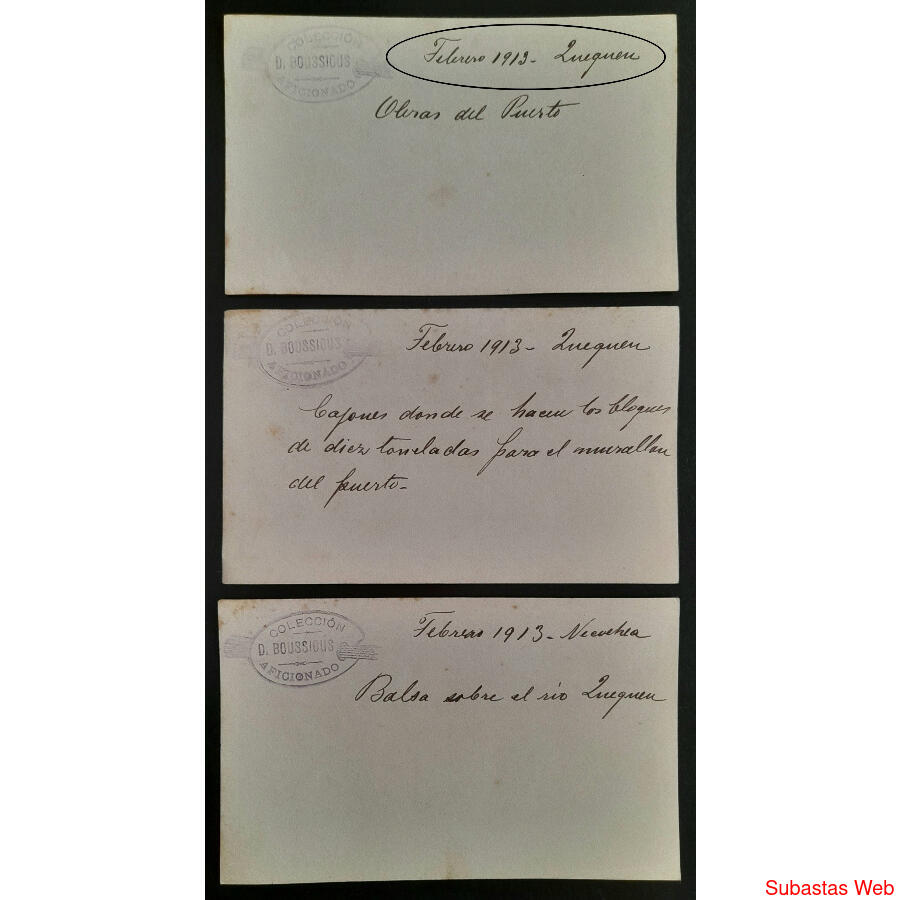 COLECCIÓN
D. BOUSSIOUS
AFICIONADO
Febrero 1913 - Quequen
Obras del Puerto
COLECCIÓN
D. BOUSSIOUS
AFICIONADO
Febrero 1913 - Quequen
Cajones donde se hacen los bloques
de diez toneladas para el murallon
del puerto -
COLECCIÓN
D. BOUSSIOUS
AFICIONADO
Febrero 1913 - Necochea
Balsa sobre el río Quequen
Subastas Web